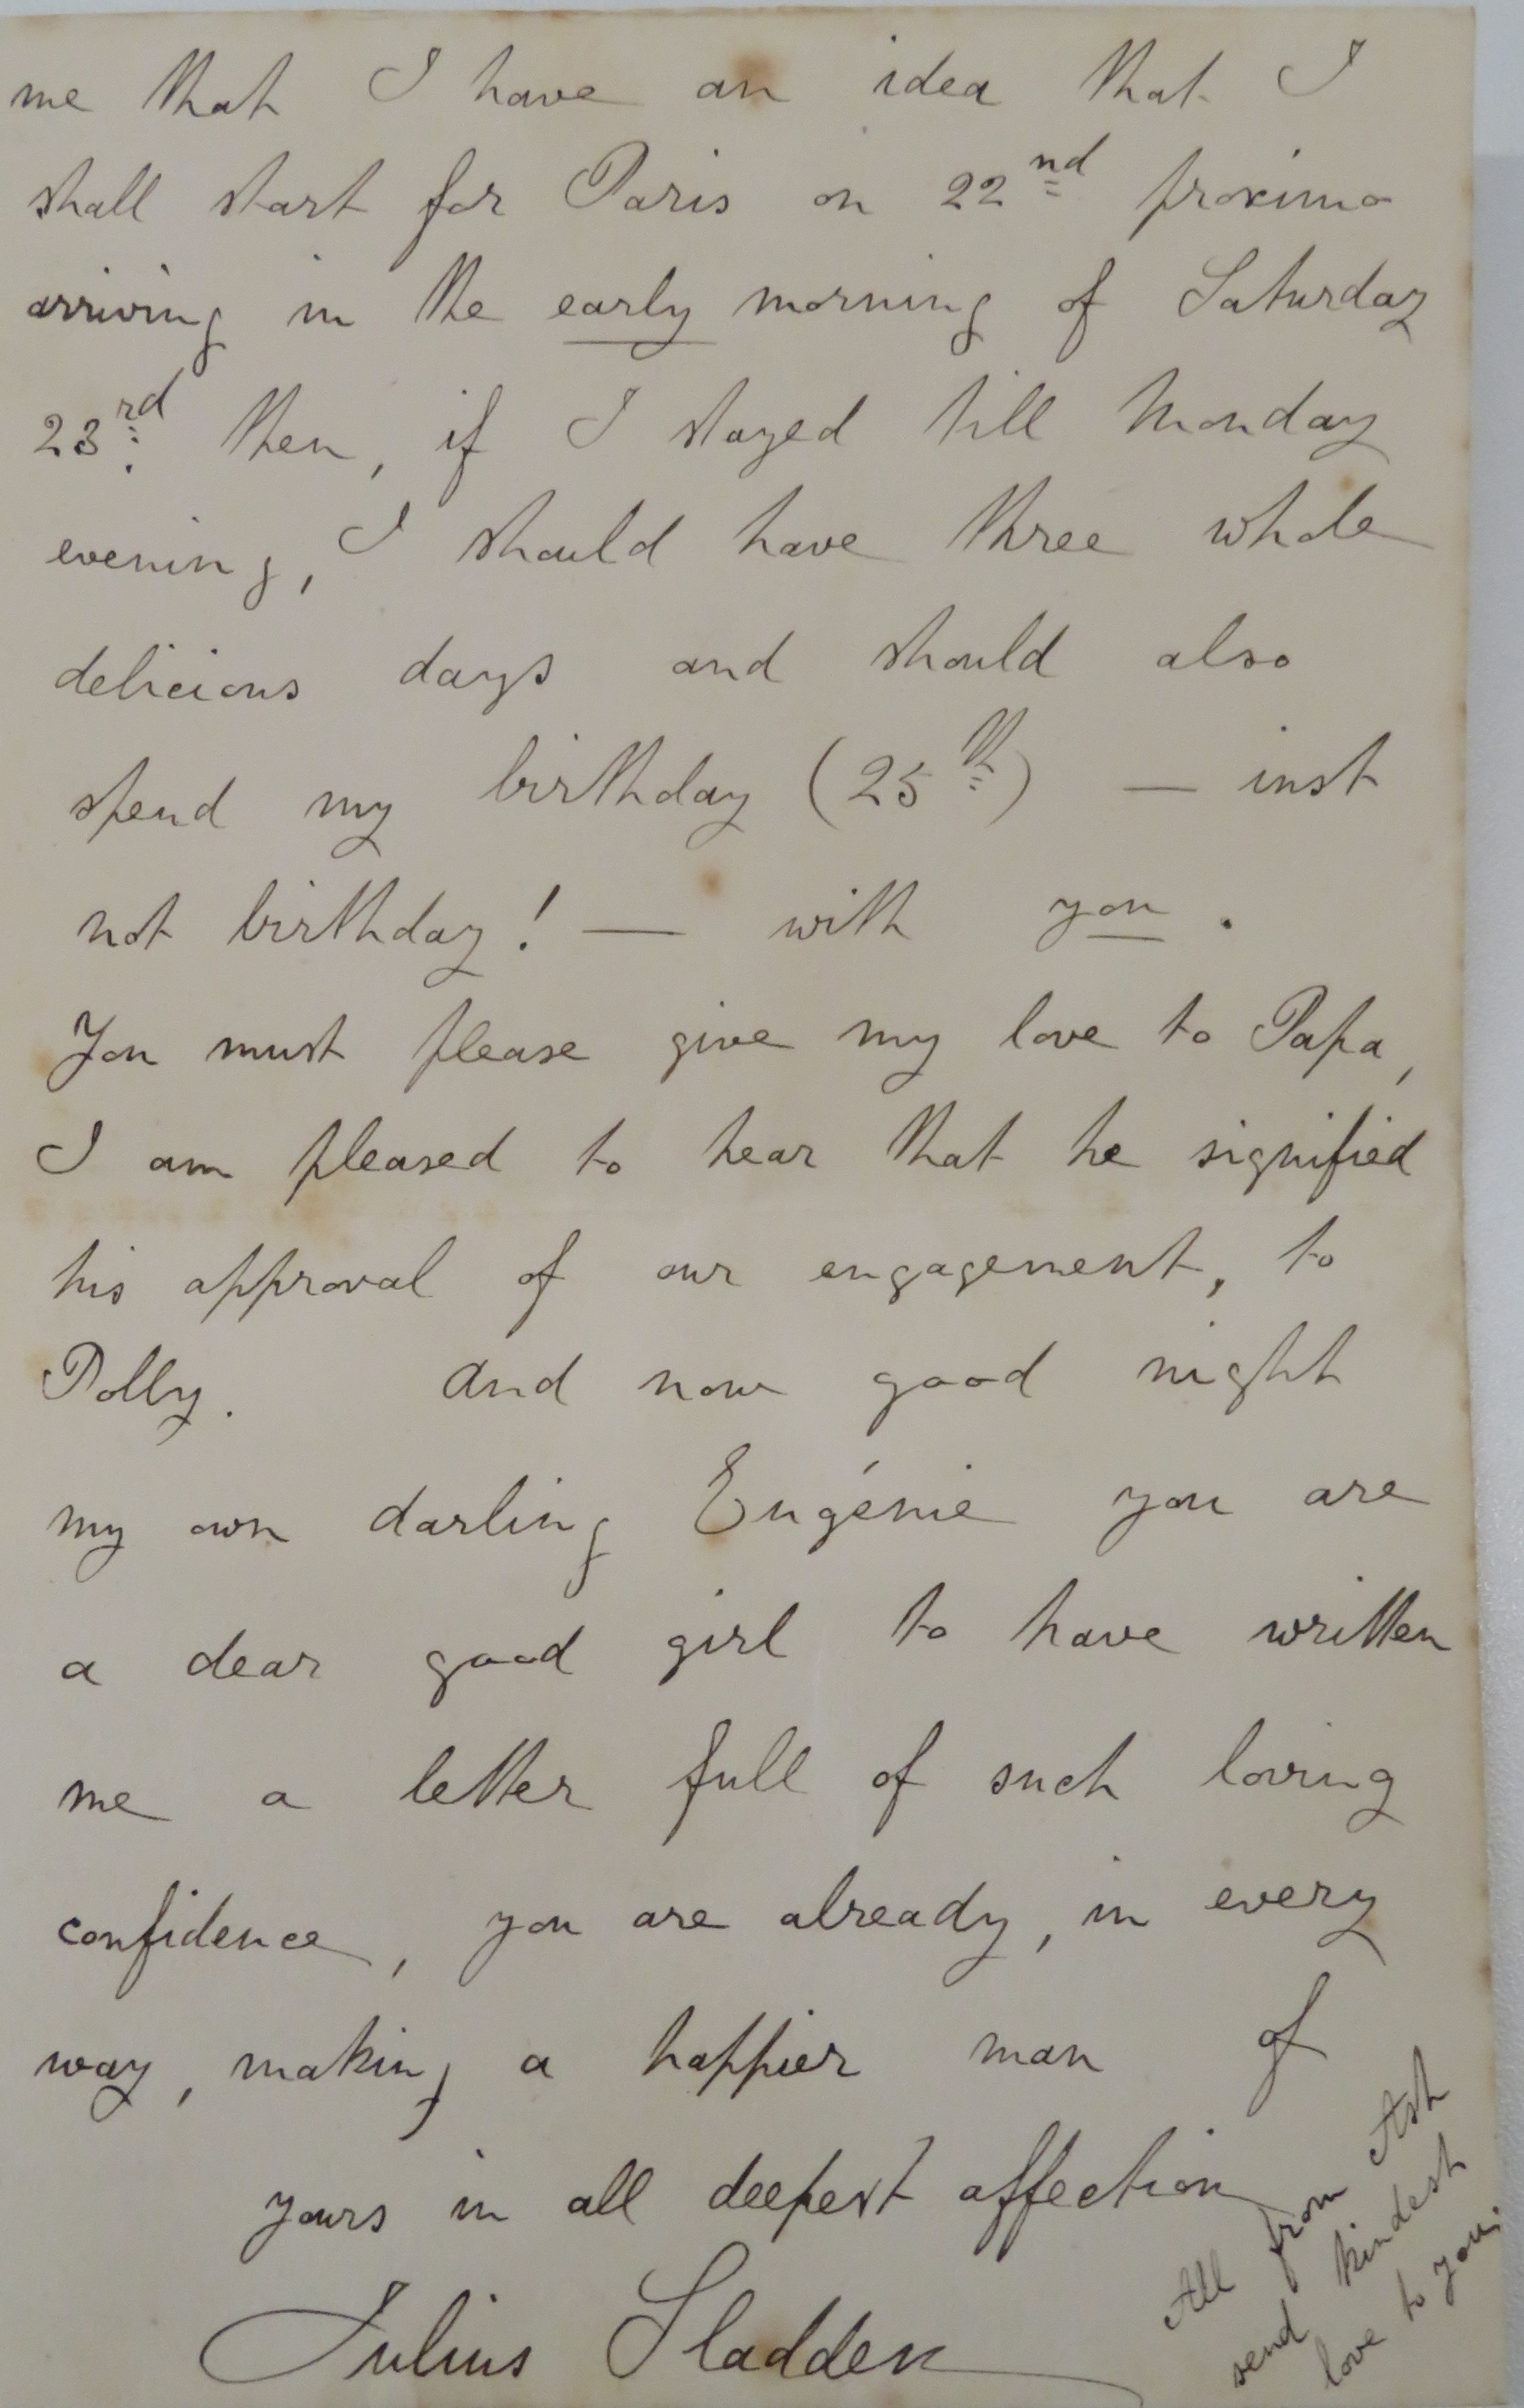 me that I have an idea that I
shall start for Paris on 22nd proximo
arriving in the early morning of Saturday
23rd. then, if I stayed till Monday
evening, I should have three whole
delicious days and should also
spend my birthday (25th) — inst
not birthday! — with you.
You must please give my love to Papa,
I am pleased to hear that he signified
his approval of our engagement, to
Polly. And now good night
my own darling Eugénie you are
a dear good girl to have written
me a letter full of such loving
confidence, you are already, in every
way, making a happier man of
yours in all deepest affection
Julius Sladden
All from Ash
send kindest
love to you.